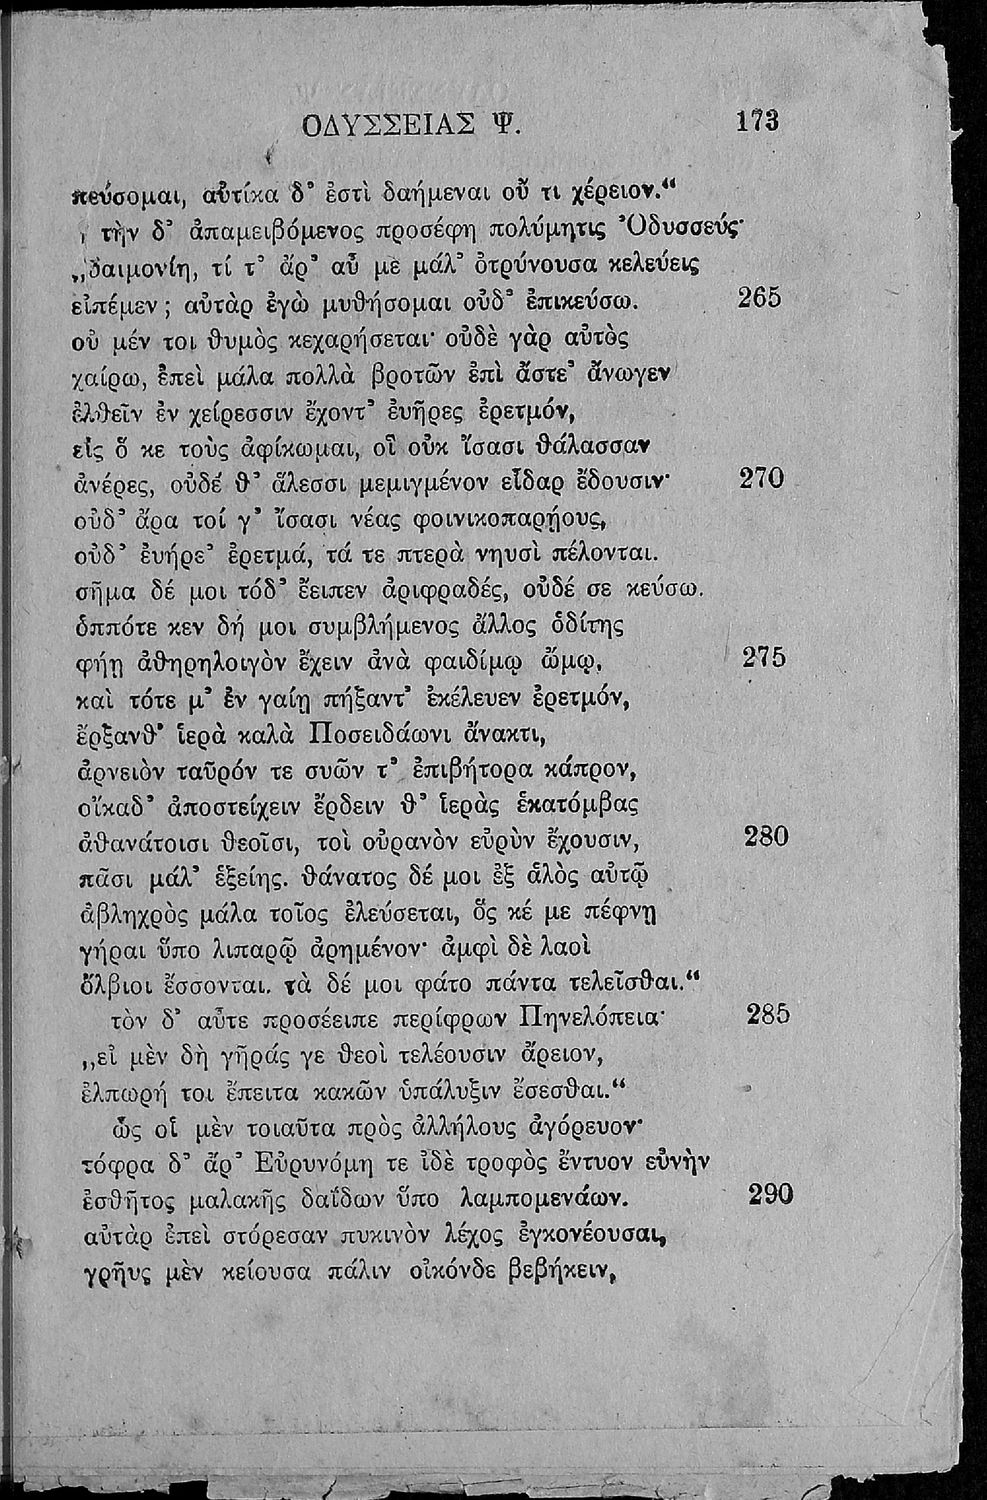 ΟΔΥΣΣΕΙΑΣ Ψ. 173
πεύσομαι, αὐτίκα δ' ἐστὶ δαήμεναι οὔ τι χέρειον.“
τὴν δ' ἀπαμειβόμενος προσέφη πολύμητις Ὀδυσσεύς·
„δαιμονίη, τί τ' ἄρ' αὖ με μάλ' ὀτρύνουσα κελεύεις
εἰπέμεν; αὐτὰρ ἐγὼ μυθήσομαι οὐδ' ἐπικεύσω. 265
οὐ μέν τοι θυμὸς κεχαρήσεται· οὐδὲ γὰρ αὐτὸς
χαίρω, ἐπεὶ μάλα πολλὰ βροτῶν ἐπὶ ἄστε' ἄνωγεν
ἐλθεῖν ἐν χείρεσσιν ἔχοντ' ἐυῆρες ἐρετμόν,
εἰς ὅ κε τοὺς ἀφίκωμαι, οἳ οὐκ ἴσασι θάλασσαν
ἀνέρες, οὐδέ θ' ἅλεσσι μεμιγμένον εἶδαρ ἔδουσιν· 270
οὐδ' ἄρα τοί γ' ἴσασι νέας φοινικοπαρῄους,
οὐδ' ἐυήρε' ἐρετμά, τά τε πτερὰ νηυσὶ πέλονται.
σῆμα δέ μοι τόδ' ἔειπεν ἀριφραδές, οὐδέ σε κεύσω.
ὁππότε κεν δή μοι συμβλήμενος ἄλλος ὁδίτης
φήῃ ἀθηρηλοιγὸν ἔχειν ἀνὰ φαιδίμῳ ὤμῳ, 275
καὶ τότε μ' ἐν γαίῃ πήξαντ' ἐκέλευεν ἐρετμόν,
ἔρξανθ' ἱερὰ καλὰ Ποσειδάωνι ἄνακτι,
ἀρνειὸν ταῦρόν τε συῶν τ' ἐπιβήτορα κάπρον,
οἴκαδ' ἀποστείχειν ἔρδειν θ' ἱερὰς ἑκατόμβας
ἀθανάτοισι θεοῖσι, τοὶ οὐρανὸν εὐρὺν ἔχουσιν, 280
πᾶσι μάλ' ἑξείης. θάνατος δέ μοι ἐξ ἁλὸς αὐτῷ
ἀβληχρὸς μάλα τοῖος ἐλεύσεται, ὅς κέ με πέφνῃ
γήραι ὕπο λιπαρῷ ἀρημένον· ἀμφὶ δὲ λαοὶ
ὄλβιοι ἔσσονται. τὰ δέ μοι φάτο πάντα τελεῖσθαι.“
τὸν δ' αὖτε προσέειπε περίφρων Πηνελόπεια· 285
„εἰ μὲν δὴ γῆράς γε θεοὶ τελέουσιν ἄρειον,
ἐλπωρή τοι ἔπειτα κακῶν ὑπάλυξιν ἔσεσθαι.“
ὣς οἱ μὲν τοιαῦτα πρὸς ἀλλήλους ἀγόρευον·
τόφρα δ' ἄρ' Εὐρυνόμη τε ἰδὲ τροφὸς ἔντυον εὐνὴν
ἐσθῆτος μαλακῆς δαΐδων ὕπο λαμπομενάων. 290
αὐτὰρ ἐπεὶ στόρεσαν πυκινὸν λέχος ἐγκονέουσαι,
γρῆυς μὲν κείουσα πάλιν οἰκόνδε βεβήκειν,